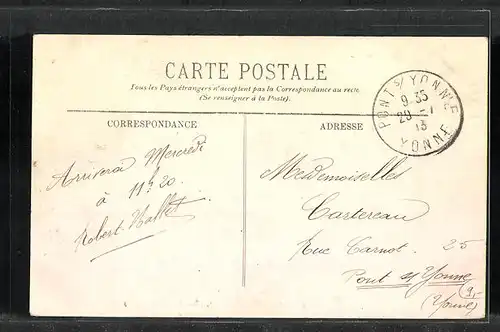 CARTE POSTALE
Tous les Pays étrangers n'acceptent pas la Correspondance au recto
(Se renseigner à la Poste).
PONT S/YONNE
9 35
29 -1
13
YONNE
CORRESPONDANCE
Arrivera Mercredi
à 11h20
Robert
ADRESSE
Mesdemoiselles
Castereau
Rue Carnot 25
Pont s/Yonne
(Yonne)